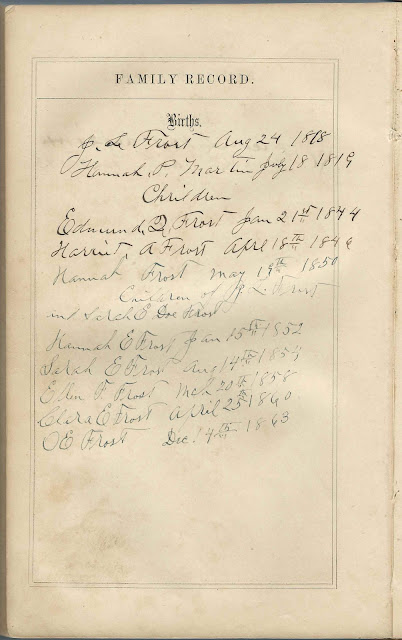 FAMILY RECORD.
Births.
J. L. Frost Aug 24 1818
Hannah P. Martin July 18 1819
Chrildren
Edmund D. Frost Jan 21st 1844
Harriet A Frost April 18th 1849
Hannah Frost may 19th 1850
Children of J L Frost
and Sarah E Doe Frost
Hannah E Frost Jan 15th 1852
Sarah E Frost Aug 14th
Ellen F. Frost Mch 20th 1858
Clara E Frost April 25th 1860
O E Frost Dec. 4th 1863